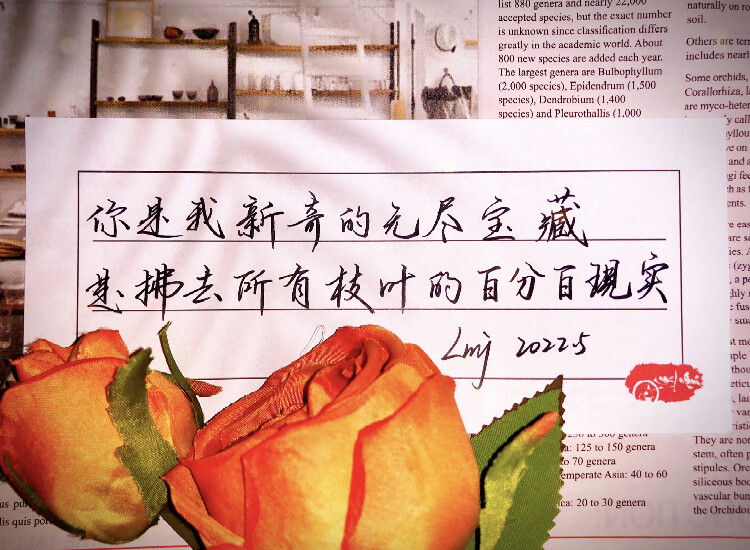 list 880 genera and nearly 22,000
accepted species, but the exact number
is unknown since classification differs
greatly in the academic world. About
800 new species are added each year.
The largest genera are Bulbophyllum
(2,000 species), Epidendrum (1,500
species), Dendrobium (1,400
species) and Pleurothallis (1,000
naturally on ro
soil.
Others are ter
includes nearl
Some orchids,
Corallorhiza, la
are myco-heter
你是我新奇的无尽宝藏
是拂去所有枝叶的百分百現实
Lmj 2022.5
: 125 to 150 genera
to 70 genera
emperate Asia: 40 to 60
ica: 20 to 30 genera
They are not
stem, often p
stipules. Orc
siliceous bod
vascular bun
the Orchidoi
lis quis port